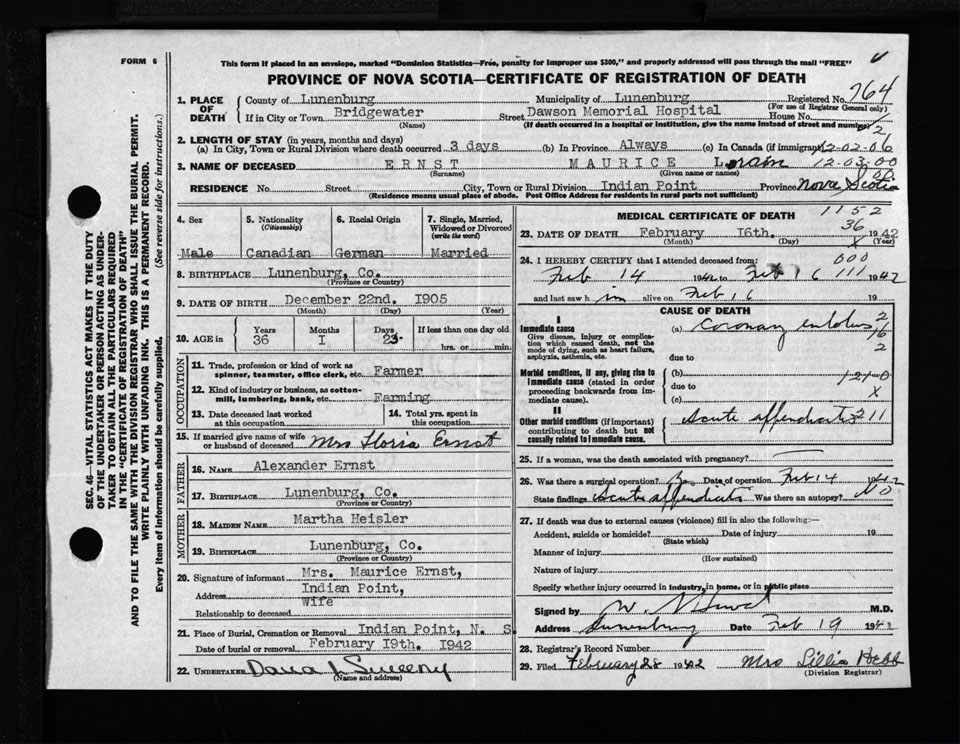 FORM 6
This form if placed in an envelope, marked "Dominion Statistics—Free, penalty for improper use $300," and properly addressed will pass through the mail "FREE"
PROVINCE OF NOVA SCOTIA—CERTIFICATE OF REGISTRATION OF DEATH
SEC. 46—VITAL STATISTICS ACT MAKES IT THE DUTY
OF THE UNDERTAKER OR PERSON ACTING AS UNDER-
TAKER TO OBTAIN ALL THE PARTICULARS REQUIRED
IN THE "CERTIFICATE OF REGISTRATION OF DEATH"
AND TO FILE THE SAME WITH THE DIVISION REGISTRAR WHO SHALL ISSUE THE BURIAL PERMIT.
WRITE PLAINLY WITH UNFADING INK. THIS IS A PERMANENT RECORD.
Every item of information should be carefully supplied. (See reverse side for instructions.)
1. PLACE OF DEATH
County of Lunenburg Municipality of Lunenburg Registered No. 764
(For use of Registrar General only)
If in City or Town Bridgewater Street Dawson Memorial Hospital House No.
(Name) (If death occurred in a hospital or institution, give the name instead of street and number)
2. LENGTH OF STAY (in years, months and days)
(a) In City, Town or Rural Division where death occurred 3 days (b) In Province Always (c) In Canada (if immigrant) 12-02-06
3. NAME OF DECEASED ERNST MAURICE 12-03-00
(Surname) (Given name or names)
RESIDENCE No. Street City, Town or Rural Division Indian Point Province Nova Scotia
(Residence means usual place of abode. Post Office Address for residents in rural parts not sufficient)
4. Sex
Male
5. Nationality
(Citizenship)
Canadian
6. Racial Origin
German
7. Single, Married,
Widowed or Divorced
(write the word)
Married
8. BIRTHPLACE Lunenburg, Co.
(Province or Country)
9. DATE OF BIRTH December 22nd. 1905
(Month) (Day) (Year)
10. AGE in
Years Months Days If less than one day old
36 I 23 hrs. or min.
OCCUPATION
11. Trade, profession or kind of work as
spinner, teamster, office clerk, etc. Farmer
12. Kind of industry or business, as cotton-
mill, lumbering, bank, etc. Farming
13. Date deceased last worked
at this occupation
14. Total yrs. spent in
this occupation
15. If married give name of wife
or husband of deceased Mrs Florra Ernst
FATHER
16. NAME Alexander Ernst
17. BIRTHPLACE Lunenburg, Co.
(Province or Country)
MOTHER
18. MAIDEN NAME Martha Heisler
19. BIRTHPLACE Lunenburg, Co.
(Province or Country)
20. Signature of informant Mrs. Maurice Ernst,
Address Indian Point,
Relationship to deceased Wife
21. Place of Burial, Cremation or Removal Indian Point, N. S.
Date of burial or removal February I9th. 1942
22. UNDERTAKER Dana J Sweeny
(Name and Address)
MEDICAL CERTIFICATE OF DEATH
1152
36
23. DATE OF DEATH February I6th. 1942
(Month) (Day) (Year)
24. I HEREBY CERTIFY that I attended deceased from: 000
Feb 14 1942 to Feb 16 111 1942
and last saw him alive on Feb 16 19
CAUSE OF DEATH
I
Immediate cause
Give disease, injury or complica-
tion which caused death, not the
mode of dying, such as heart failure,
asphyxia, asthenia, etc.
(a) Coronary embolus
due to
Morbid conditions, if any, giving rise to
immediate cause (stated in order
proceeding backwards from im-
mediate cause).
(b)
due to 121-0
(c) X
II
Other morbid conditions (if important)
contributing to death but not
causally related to immediate cause.
Acute appendicitis 211
25. If a woman, was the death associated with pregnancy?
26. Was there a surgical operation? Date of operation Feb 14 1942
State findings Acute appendicitis Was there an autopsy? No
27. If death was due to external causes (violence) fill in also the following:—
Accident, suicide or homicide? Date of injury 19
(State which)
Manner of injury
(How sustained)
Nature of injury
Specify whether injury occurred in industry, in home, or in public place
Signed by M.D.
Address Lunenburg Date Feb 19 1942
28. Registrar's Record Number
29. Filed February 28 1942 Mrs Lillia Hebb
(Division Registrar)